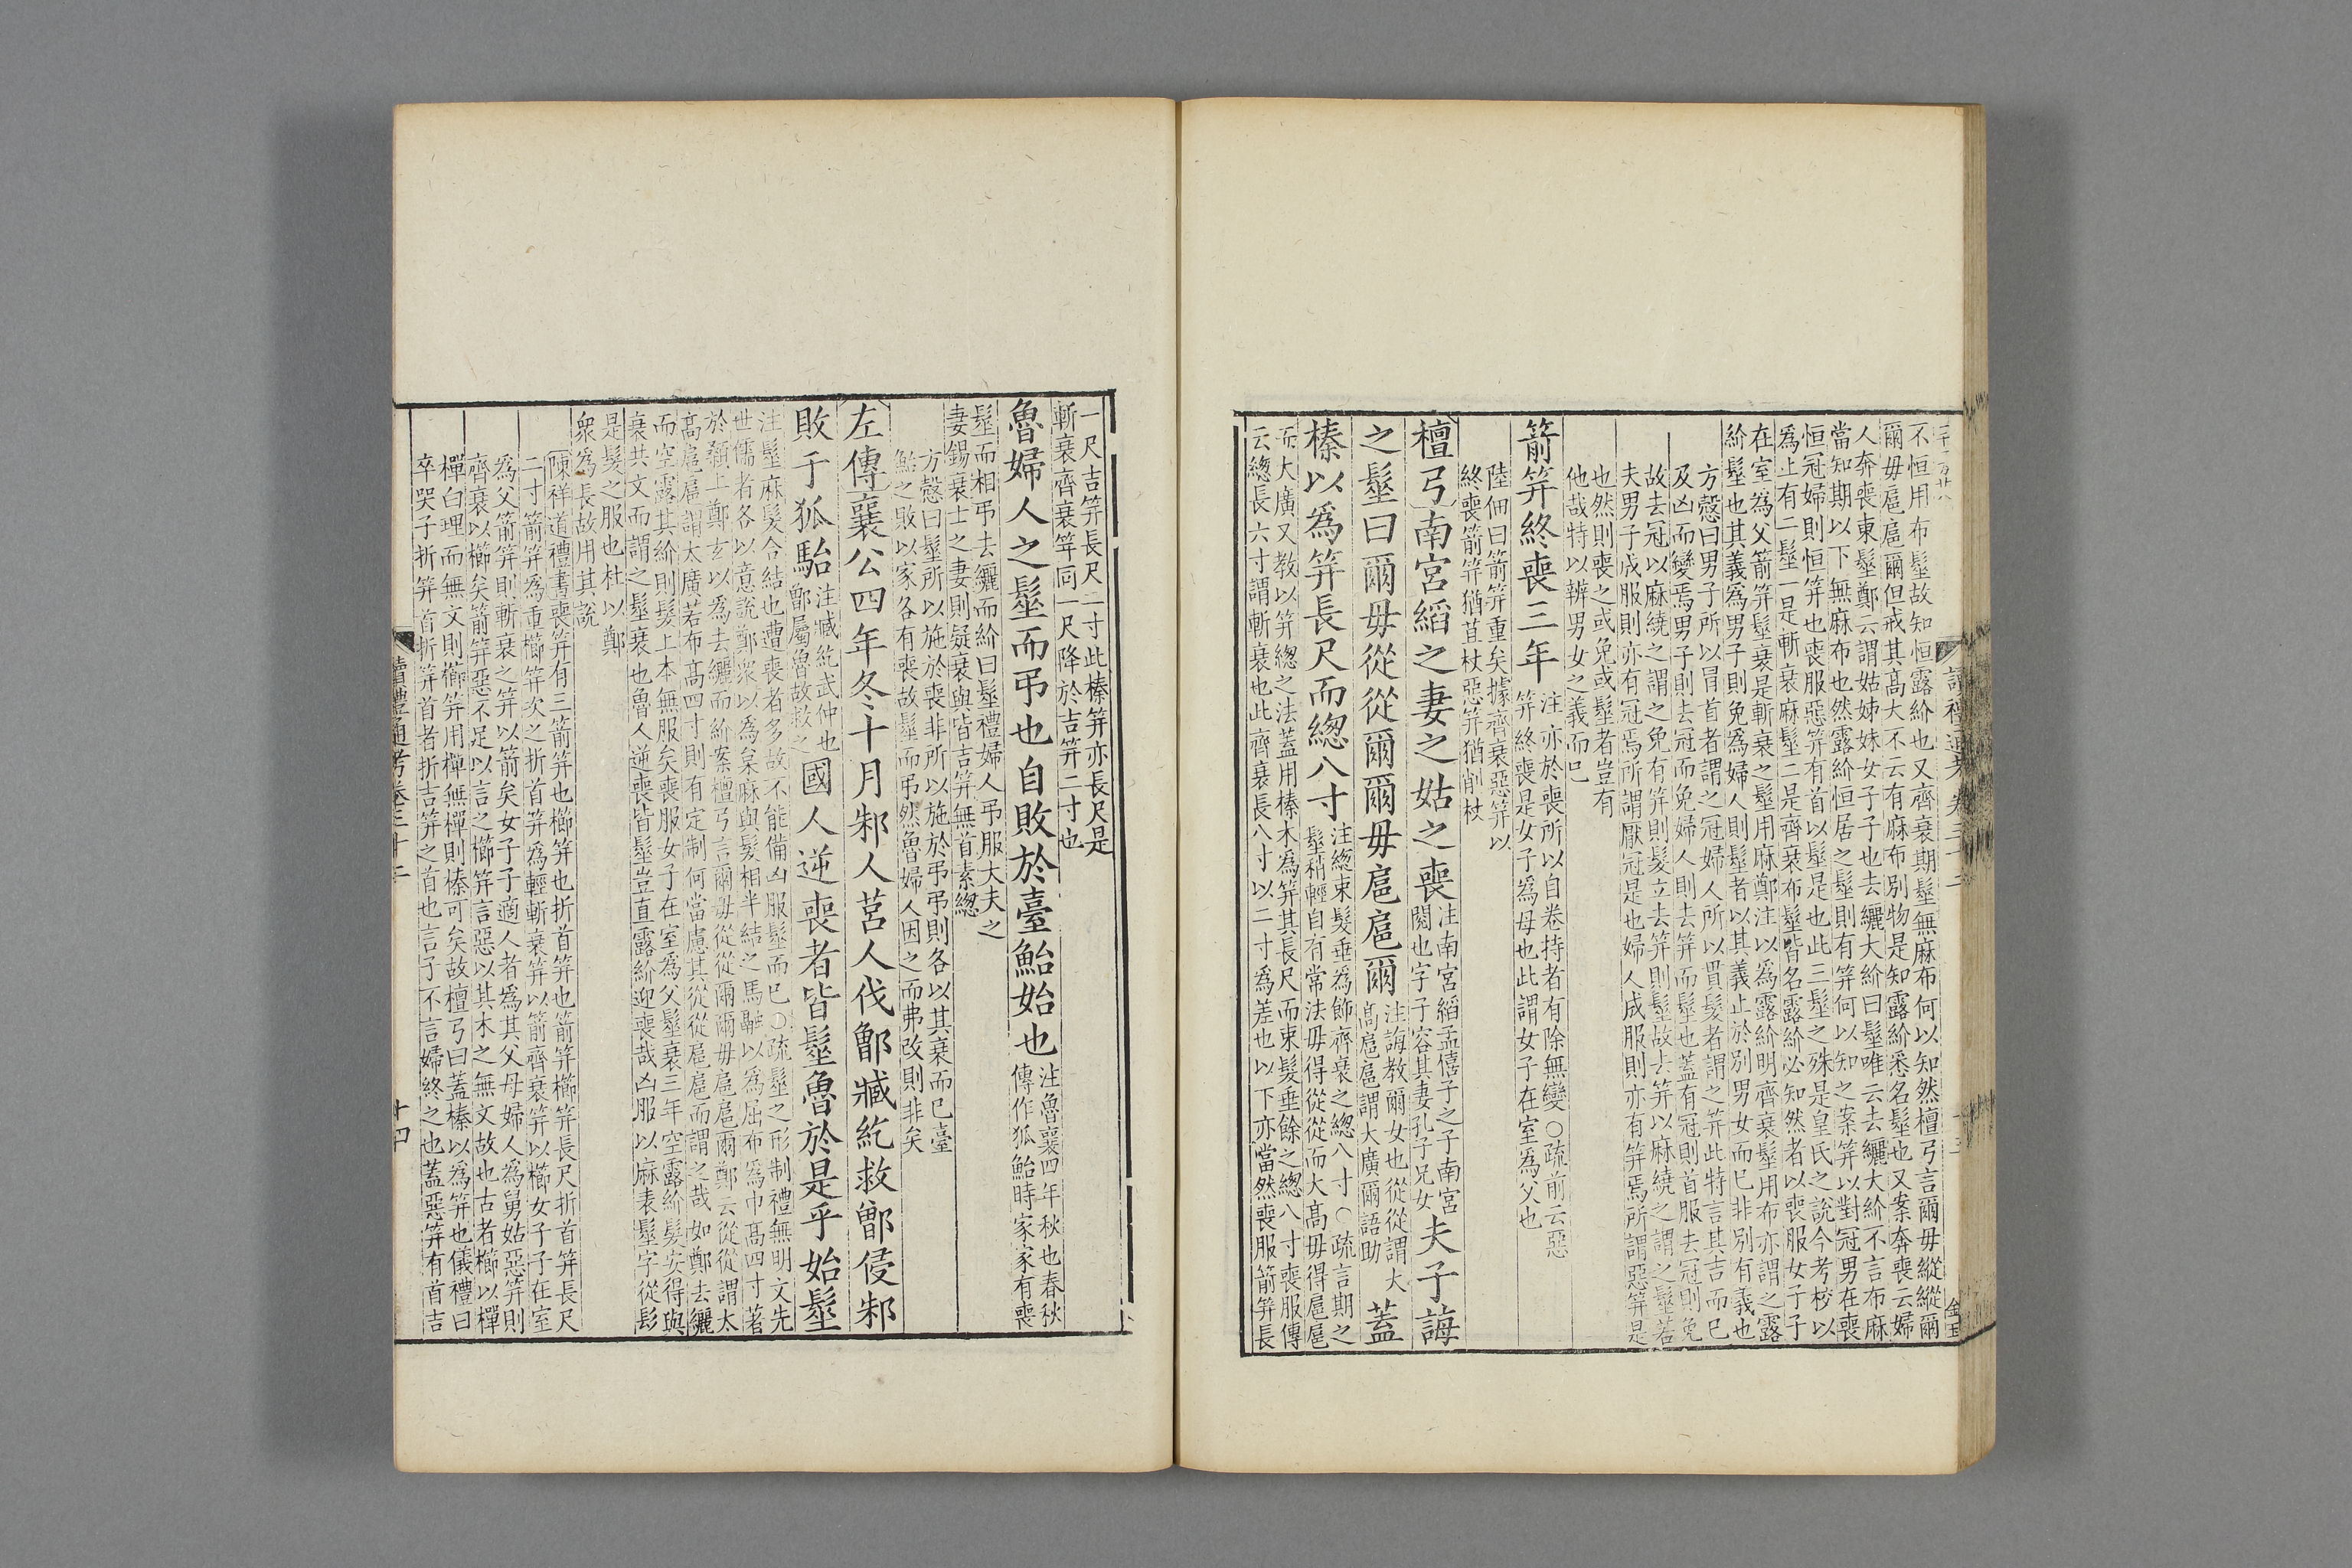 不恒用布髽故知恒露紒也又齊衰期髽無麻布何以知然檀弓言爾毋縱縱爾
爾毋扈扈爾但戒其髙大不云有麻布別物是知露紒悉名髽也又案奔喪云婦
人奔喪東髽鄭云謂姑姊妹女子子也去纚大紒曰髽唯云去纚大紒不言布麻
當知期以下無麻布也然露紒恒居之髽則有笄何以知之案笄以對冠男在喪
恒冠婦則恒笄也喪服惡笄有首以髽是也此三髽之殊是皇氏之說今考校以
爲止有二髽一是斬衰麻髽二是齊衰布髽皆名露紒必知然者以喪服女子子
在室為父箭笄髽衰是斬衰之髽用麻鄭注以為露紒明齊衰髽用布亦謂之露
紒髽也其義爲男子則免爲婦人則髽者以其義止於別男女而已非別有義也
方慤曰男子所以冒首者謂之冠婦人所以貫髮者謂之笄此特言其吉而已
及凶而變焉男子則去冠而免婦人則去笄而髽也蓋有冠則首服去冠則免
故去冠以麻繞之謂之免有笄則髮立去笄則髽故去笄以麻繞之謂之髽若
夫男子成服則亦有冠焉所謂厭冠是也婦人成服則亦有笄焉所謂惡笄是
也然則喪之或免或髽者豈有
他哉特以辨男女之義而已
箭笄終喪三年
注亦於喪所以自卷持者有除無變○疏前云惡
笄終喪是女子爲母也此謂女子在室爲父也
陸佃曰箭笄重矣據齊衰惡笄以
終喪箭笄猶苴杖惡笄猶削杖
檀弓南宮縚之妻之姑之喪
注南宮縚孟僖子之子南宮
閱也字子容其妻孔子兄女
夫子誨
之髽曰爾毋從從爾爾毋扈扈爾
注誨教爾女也從從謂大
髙扈扈謂大廣爾語助
蓋
榛以爲笄長尺而緫八寸
注緫束髮垂爲飾齊衰之緫八寸○疏言期之
髽稍輕自有常法毋得從從而大髙毋得扈扈
而大廣又教以笄緫之法蓋用榛木為笄其長尺而束髮垂餘之緫八寸喪服傳
云緫長六寸謂斬衰也此齊衰長八寸以二寸爲差也以下亦當然喪服箭笄長
一尺吉笄長尺二寸此榛笄亦長尺是
斬衰齊衰笄同一尺降於吉笄二寸也
魯婦人之髽而弔也自敗於臺鮐始也
注魯襄四年秋也春秋
傳作狐鮐時家家有喪
髽而相弔去纚而紒曰髽禮婦人弔服大夫之
妻錫衰士之妻則疑衰與皆吉笄無首素緫
方慤曰髽所以施於喪非所以施於弔弔則各以其衰而已臺
鮐之敗以家各有喪故髽而弔然魯婦人因之而弗改則非矣
左傳襄公四年冬十月邾人莒人伐鄫臧紇救鄫侵邾
敗于狐駘
注臧紇武仲也
鄫屬魯故救之
國人逆喪者皆髽魯於是乎始髽
注髽麻髮合結也遭喪者多故不能備凶服髽而已○疏髽之形制禮無明文先
世儒者各以意說鄭衆以為枲麻與髮相半結之馬融以為屈布爲巾髙四寸著
於顙上鄭玄以爲去纚而紒案檀弓言爾毋從從爾爾毋扈扈爾鄭云從從謂太
髙扈扈謂太廣若布髙四寸則有定制何當慮其從從扈扈而謂之哉如鄭去纚
而空露其紒則髮上本無服矣喪服女子在室爲父髽衰三年空露紒髮安得與
衰共文而謂之髽衰也魯人逆喪皆髽豈直露紒迎喪哉凶服以麻表髽字從髟
是髮之服也杜以鄭
衆為長故用其說
陳祥道禮書喪笄有三箭笄也櫛笄也折首笄也箭笄櫛笄長尺折首笄長尺
二寸箭笄爲重櫛笄次之折首笄爲輕斬衰笄以箭齊衰笄以櫛女子子在室
爲父箭笄則斬衰之笄以箭矣女子子適人者爲其父母婦人爲舅姑惡笄則
齊衰以櫛矣箭笄惡不足以言之櫛笄言惡以其木之無文故也古者櫛以樿
樿白理而無文則櫛笄用樿無樿則榛可矣故檀弓曰蓋榛以為笄也儀禮曰
卒哭子折笄首折笄首者折吉笄之首也言子不言婦終之也蓋惡笄有首吉
讀禮通考卷三十二
十四